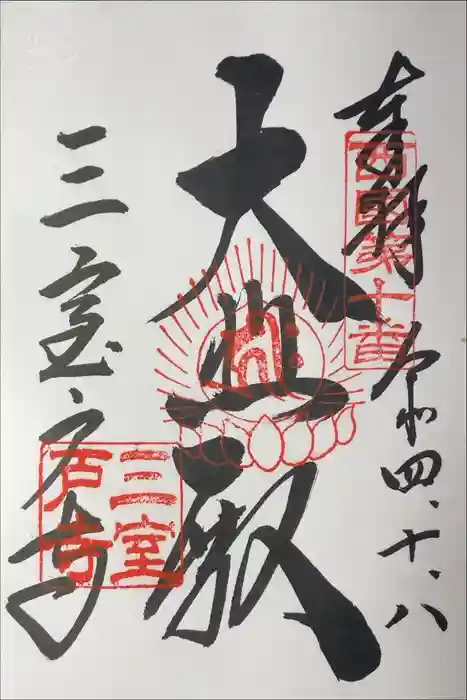 奉拝 令和四、十、八
西国第十番
大悲殿
三室戸寺
三室戸寺